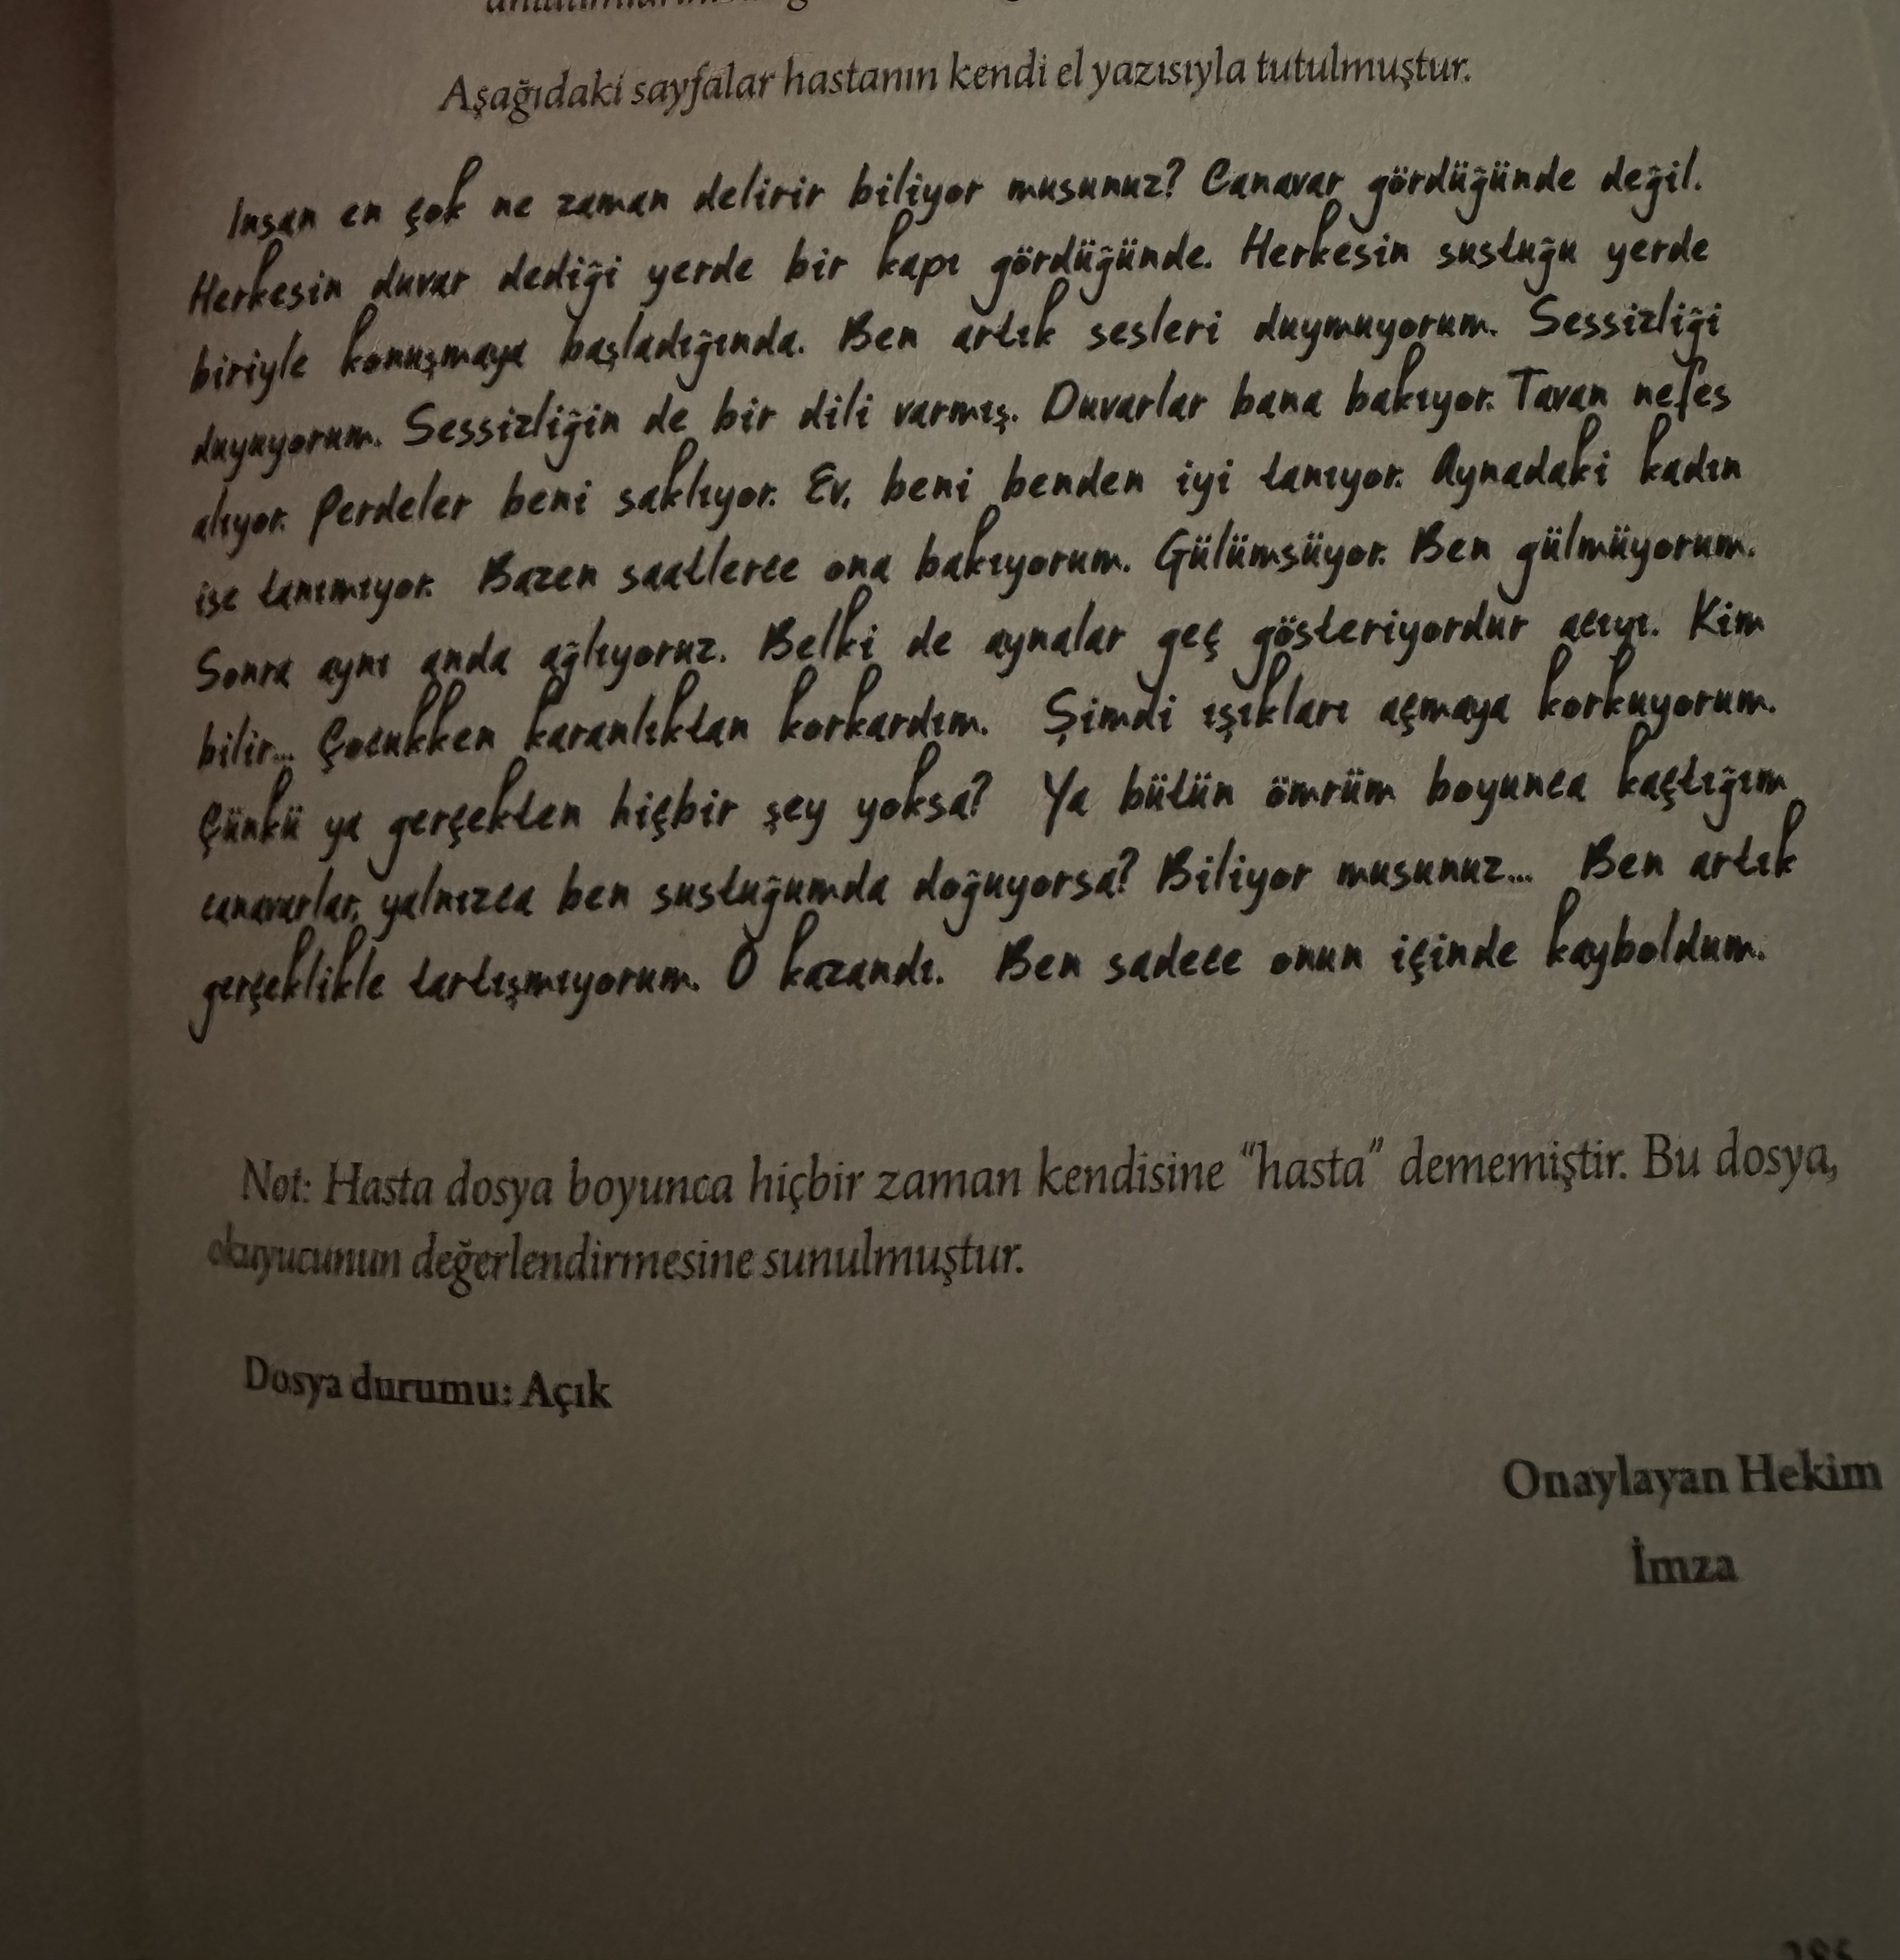 Aşağıdaki sayfalar hastanın kendi el yazısıyla tutulmuştur.
Insan en çok ne zaman delirir biliyor musunuz? Canavar gördüğünde değil.
Herkesin duvar dediği yerde bir kapı gördüğünde. Herkesin sustuğu yerde
biriyle konuşmaya başladığında. Ben artık sesleri duymuyorum. Sessizliği
duyuyorum. Sessizliğin de bir dili varmış. Duvarlar bana bakıyor. Tavan nefes
alıyor. Perdeler beni saklıyor. Ev, beni benden iyi tanıyor. Aynadaki kadın
ise tanımıyor. Bazen saatlerce ona bakıyorum. Gülümsüyor. Ben gülmüyorum.
Sonra aynı anda ağlıyoruz. Belki de aynalar geç gösteriyordur acıyı. Kim
bilir... Çocukken karanlıktan korkardım. Şimdi ışıkları açmaya korkuyorum.
Çünkü ya gerçekten hiçbir şey yoksa? Ya bütün ömrüm boyunca kaçtığım
canavarlar, yalnızca ben sustuğumda doğuyorsa? Biliyor musunuz... Ben artık
gerçeklikle tartışmıyorum. O kazandı. Ben sadece onun içinde kayboldum.
Not: Hasta dosya boyunca hiçbir zaman kendisine "hasta" dememiştir. Bu dosya,
okuyucunun değerlendirmesine sunulmuştur.
Dosya durumu: Açık
Onaylayan Hekim
İmza